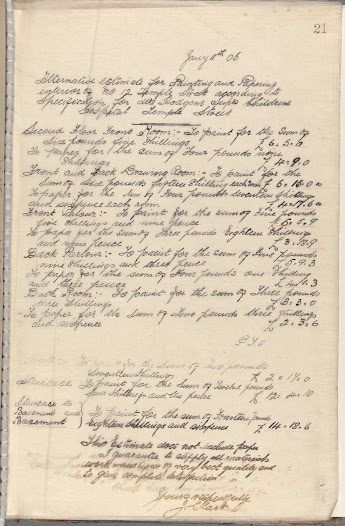 21
Jany 11th 06
Alternative estimate for Painting and Papering
interior of No 12 Temple Street according to
Specification for Mrs Hodgens Supt Childrens
Hospital Temple Street
Second Floor Front Room:- To paint for the Sum of
Six pounds five Shillings £ 6.5.0
To paper for the Sum of Four pounds nine
Shillings £ 4.9.0
Front and Back Drawing Room:- To paint for the
Sum of Six pounds fifteen Shillings each rm £ 6-15.0
To paper for the Sum of Four pounds Seventeen Shillings
and Sixpence each room £ 4.17.6
Front Parlour:- To paint for the Sum of Five pounds
five Shillings and nine pence £ 5.5.9
To paper for the Sum of Three pounds Eighteen Shillings
and nine pence £ 3.18.9
Back Parlour:- To paint for the Sum of Five pounds
nine Shillings and three pence £ 5.9.3
To paper for the Sum of Four pounds one Shilling
and three pence £ 4.1.3
Back Room:- To paint for the Sum of Three pounds
three Shillings £ 3.3.0
To paper for the Sum of Two pounds three Shillings
and Sixpence £ 2.3.6
P.T.O
To paint for the Sum of two pounds
Seventeen Shillings £ 2.17.0
Staircase To paint for the Sum of Twelve pounds
four Shillings and ten pence £ 12.4.10
Staircase to
Basement and To paint for the Sum of Fourteen pounds
Basement Eighteen Shillings and Sixpence £ 14-18.6
This Estimate does not include paper
I guarantee to supply all materials
work manship of very best quality and
to give complete satisfaction
Yours respectfully
J. Clarke